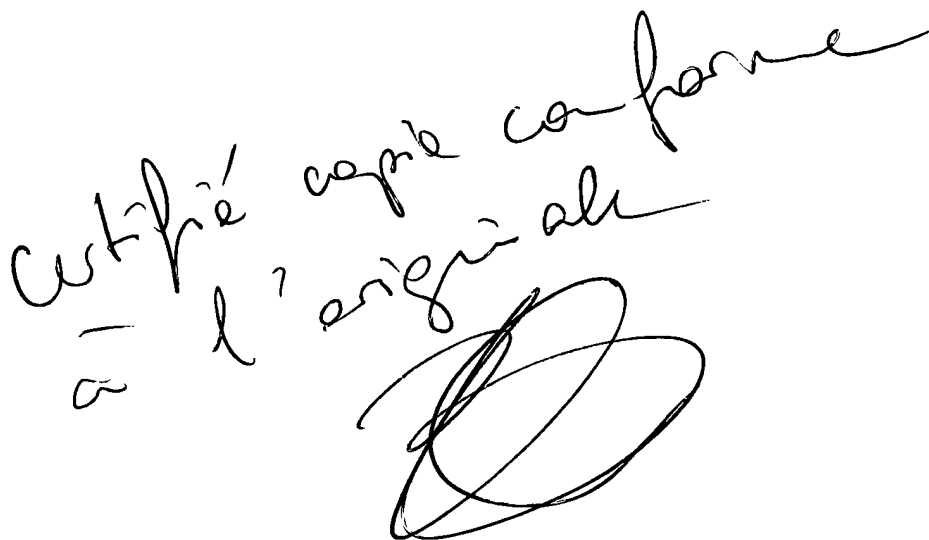 Certifié copie conforme
à l'originale